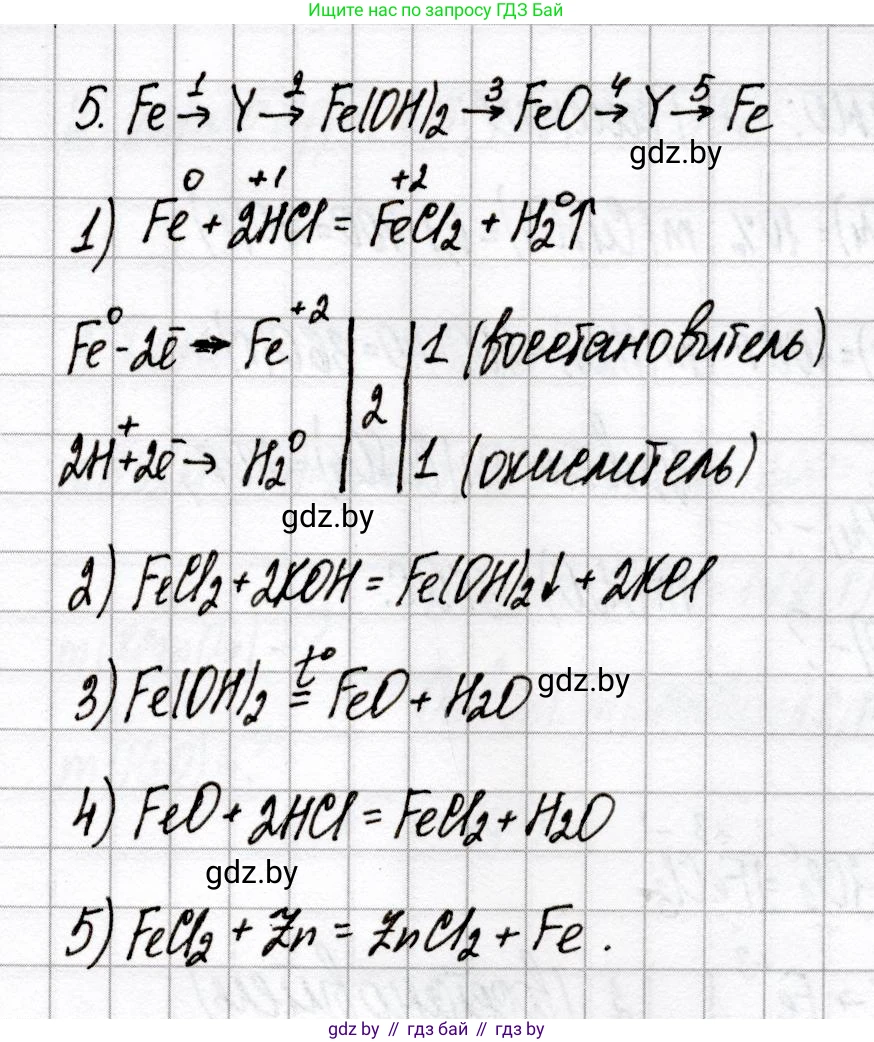 Ищите нас по запросу ГДЗ Бай
5. Fe →¹ Y →² Fe(OH)₂ →³ FeO →⁴ Y →⁵ Fe
gdz.by
0 +1 +2 0
1) Fe + 2HCl = FeCl₂ + H₂↑
Fe⁰ - 2ē → Fe⁺² | | 1 (восстановитель)
2
2H⁺ + 2ē → H₂⁰ | | 1 (окислитель)
gdz.by
2) FeCl₂ + 2KOH = Fe(OH)₂↓ + 2KCl
t°
3) Fe(OH)₂ = FeO + H₂O
gdz.by
4) FeO + 2HCl = FeCl₂ + H₂O
gdz.by
5) FeCl₂ + Zn = ZnCl₂ + Fe.
gdz.by // гдз бай // gdz.by